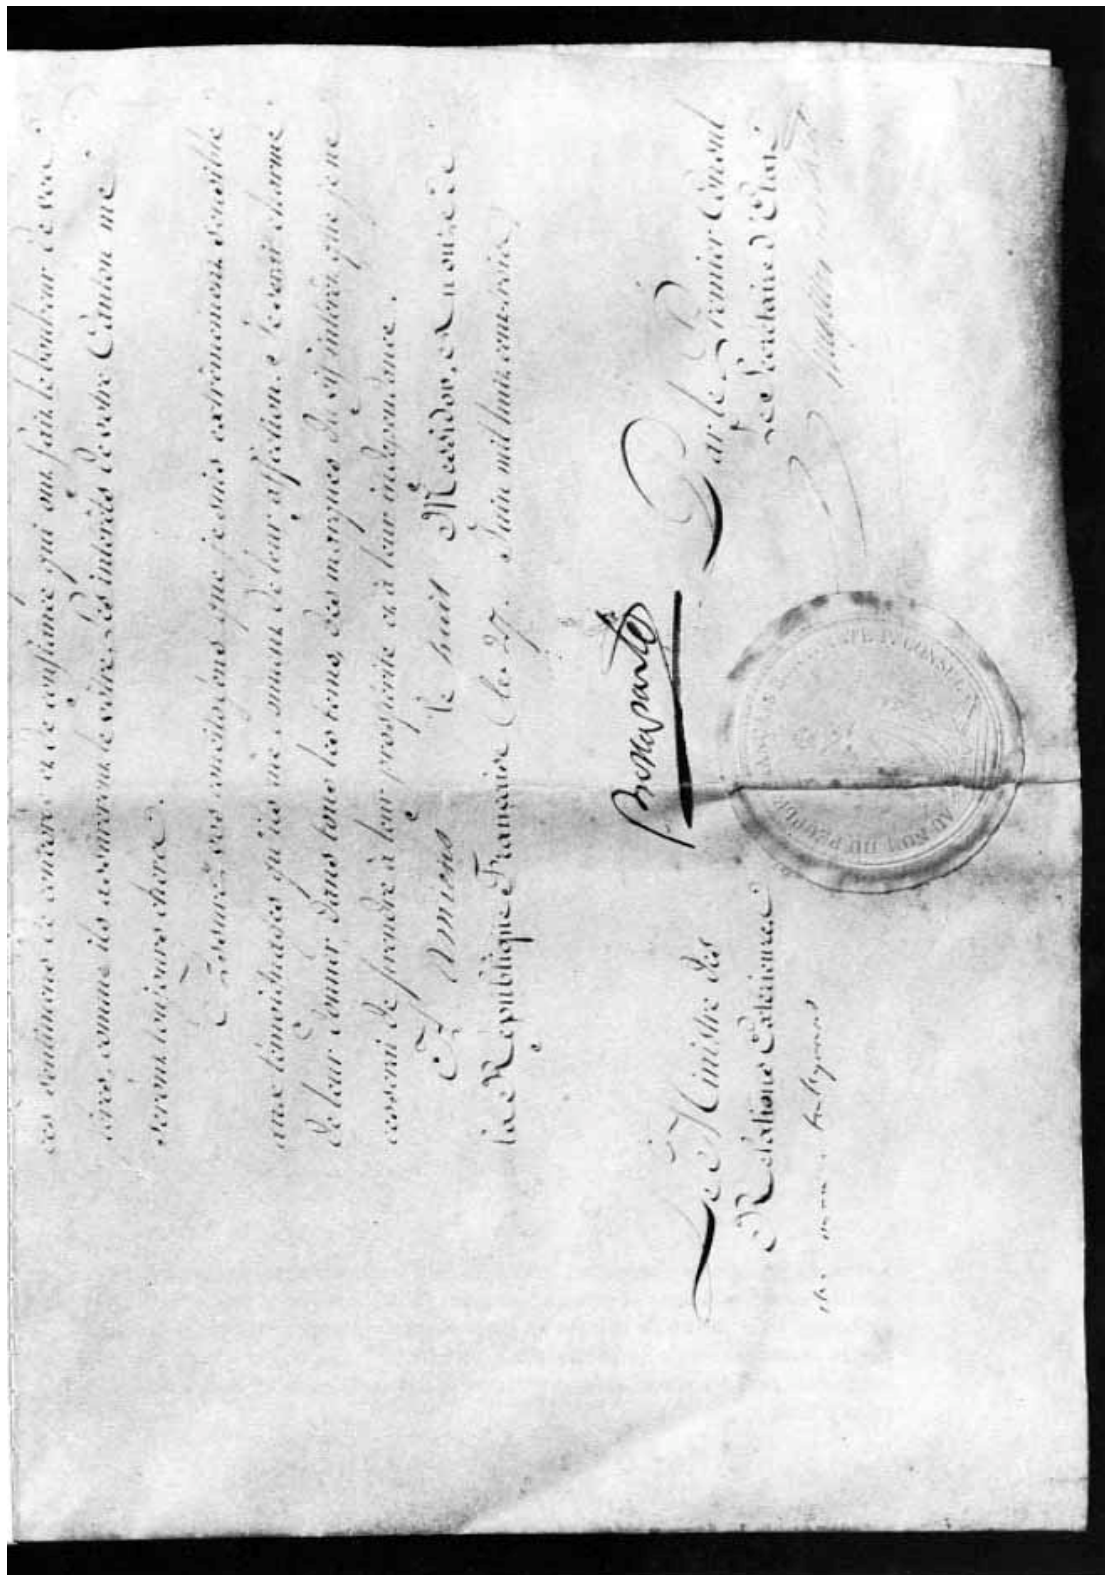 ces sentimens de concorde et de confiance qui ont fait le bonheur de vos
pères, comme ils assureront le vôtre. Les intérêts de votre Canton me
seront toujours chers.
Assurez vos concitoyens que je suis extrêmement sensible
aux témoignages qu'ils me donnent de leur affection. Je serai charmé
de leur donner dans tous les tems, des marques du vif intérêt que je ne
cesserai de prendre à leur prospérité et à leur indépendance.
A Amiens le huit Messidor, an onze de
la République Française (le 27. Juin mil huit cent trois)
Bonaparte
Le Ministre des
Relations Extérieures
Par le Premier Consul
Le Secrétaire d'Etat
AU NOM DU PEUPLE FRANÇAIS BONAPARTE 1er CONSUL